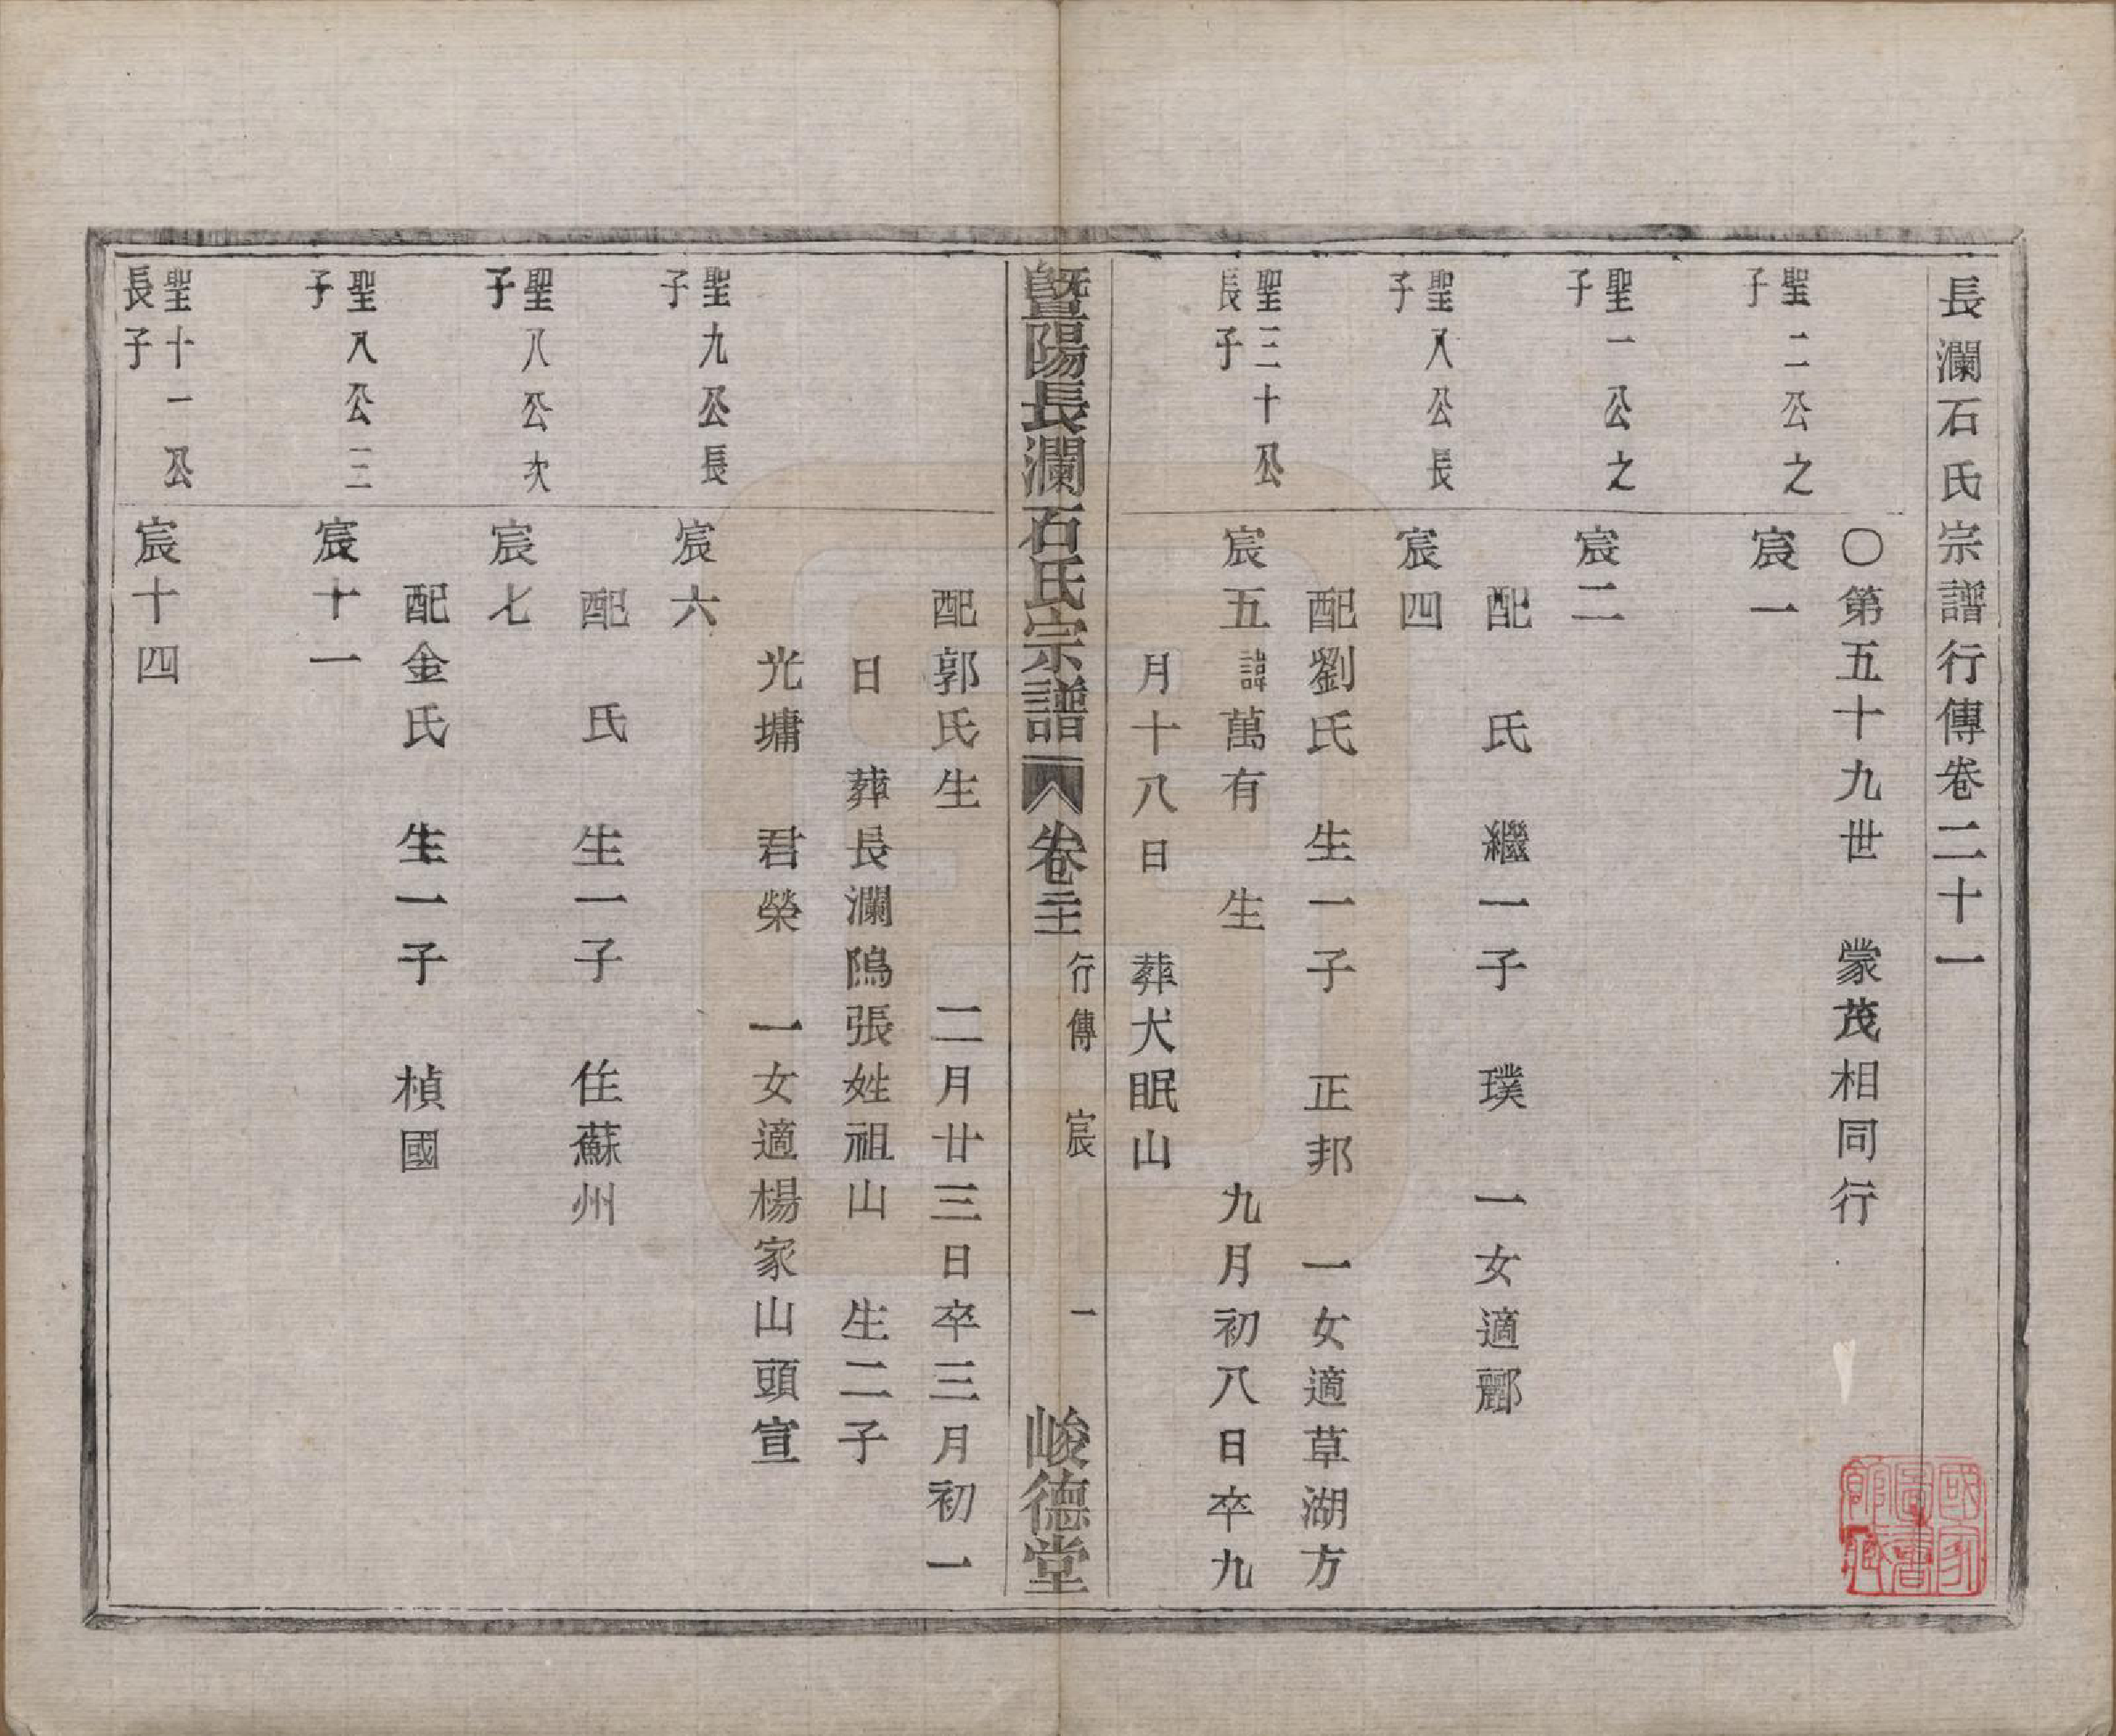 長瀾石氏宗譜行傳卷二十一
〇第五十九世　蒙茂相同行
聖二公之
子
宸一
聖一公之
子
宸二
配　氏　繼一子　璞　一女適酈
聖八公長
子
宸四
配劉氏　生一子　正邦　一女適草湖方
聖三十公
長子
宸五諱萬有　生　九月初八日卒九
月十八日　葬犬眠山
暨陽長瀾石氏宗譜　卷二十一　行傳　宸　一　峻德堂
配郭氏生　二月廿三日卒三月初一
日　葬長瀾隝張姓祖山　生二子
光墉　君榮　一女適楊家山頭宣
聖九公長
子
宸六
配　氏　生一子　住蘇州
聖八公次
子
宸七
配金氏　生一子　楨國
聖八公三
子
宸十一
聖十一公
長子
宸十四
國家圖書館藏